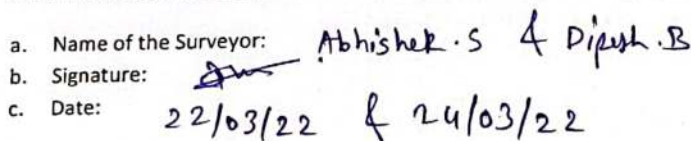 a. Name of the Surveyor: Abhishek.S & Dipesh.B
b. Signature:
c. Date: 22/03/22 & 24/03/22